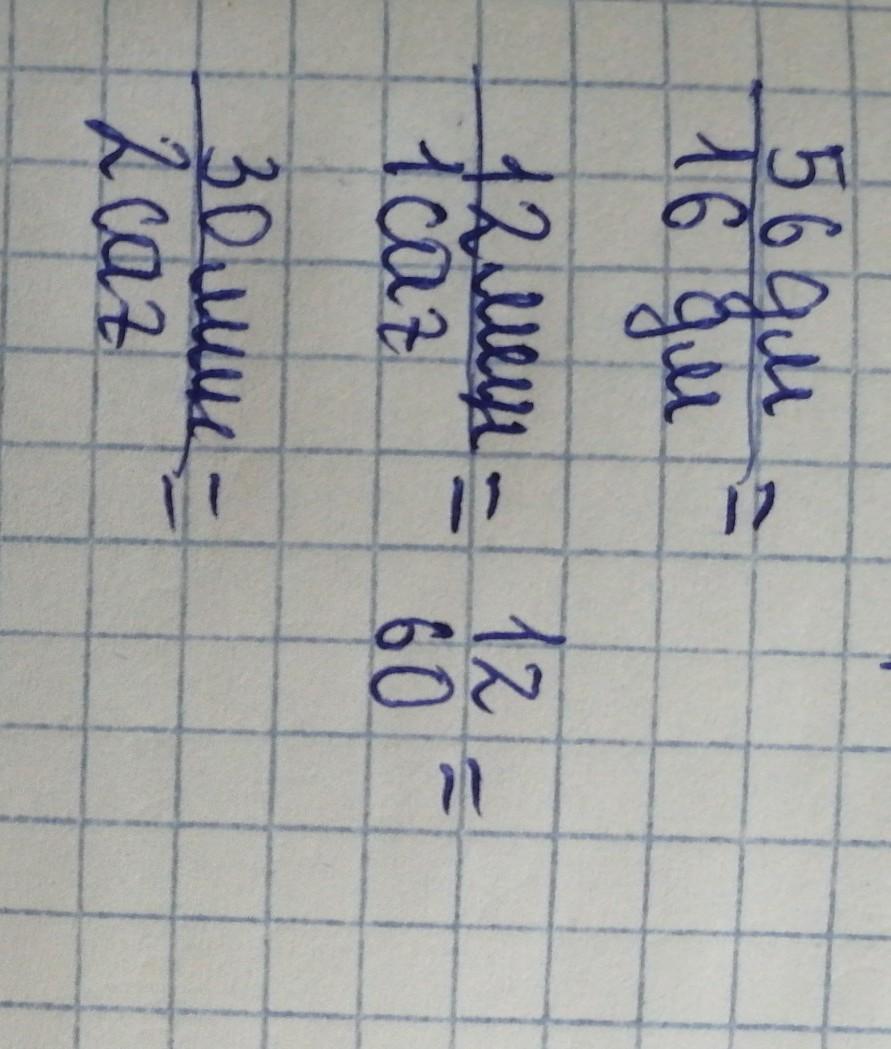 56 дм
16 дм =
12 мин
1 саг = 12
60 =
30 мин
2 саг =